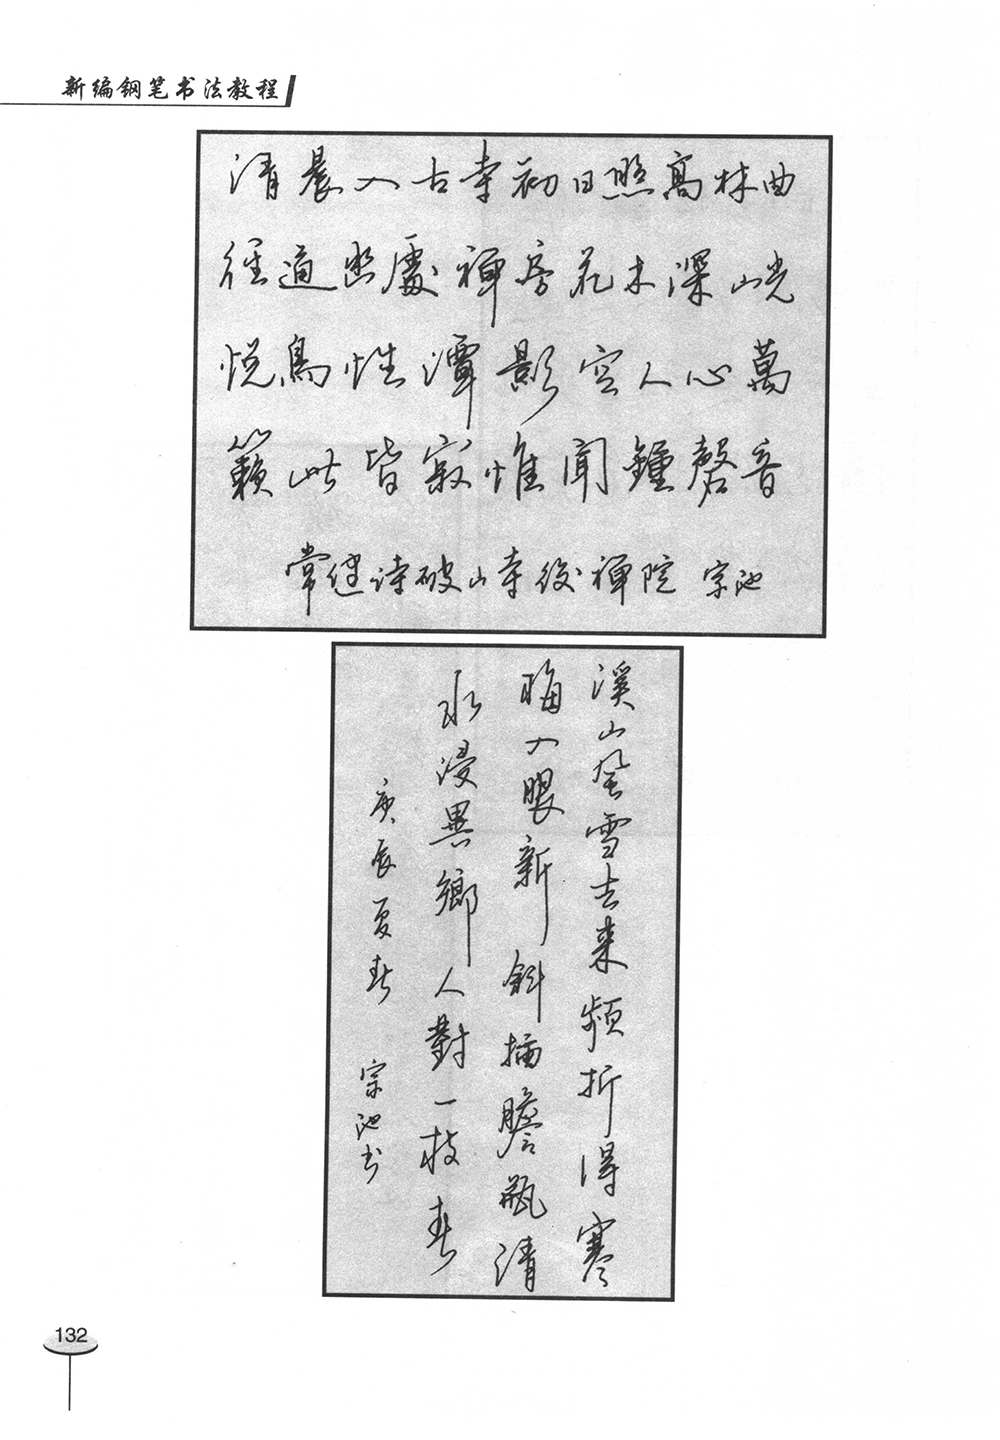 新编钢笔书法教程
清晨入古寺初日照高林曲
径通幽處禪房花木深山光
悦鳥性潭影空人心萬
籟此皆寂惟聞鐘磬音
常健诗破山寺後禪院 宗池
溪山風雪去来频折得寒
梅入眼新斜插膽瓶清
水浸異鄉人對一枝春
庚辰夏春
宗池书
132